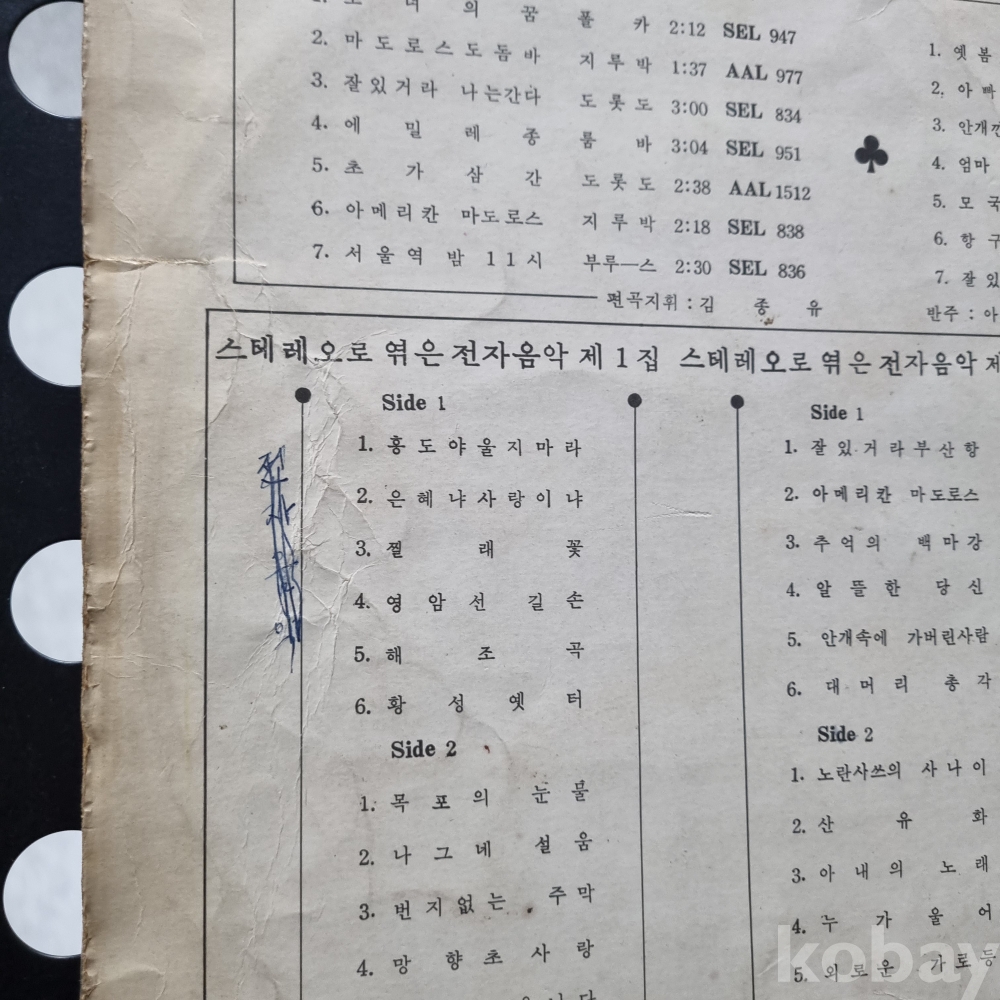 의 꿈 폴 카 2:12 SEL 947
2. 마도로스도돔바 지루박 1:37 AAL 977
3. 잘있거라 나는간다 도롯도 3:00 SEL 834
4. 에 밀 레 종 룸 바 3:04 SEL 951
5. 초 가 삼 간 도롯도 2:38 AAL 1512
6. 아메리칸 마도로스 지루박 2:18 SEL 838
7. 서울역 밤 11시 부루—스 2:30 SEL 836
편곡지휘 : 김 종 유
1. 옛 봄
2. 아 빠
3. 안개낀
4. 엄마
5. 모 국
6. 항 구
7. 잘 있
반주 : 아
스테레오로 엮은 전자음악 제 1 집
Side 1
1. 홍도야울지마라
2. 은혜냐사랑이냐
3. 찔 래 꽃
4. 영암선 길손
5. 해 조 곡
6. 황 성 옛 터
Side 2
1. 목포의 눈물
2. 나그네 설움
3. 번지없는 주막
4. 망향초사랑
스테레오로 엮은 전자음악 제
Side 1
1. 잘있거라부산항
2. 아메리칸 마도로스
3. 추억의 백마강
4. 알뜰한 당신
5. 안개속에 가버린사람
6. 대머리 총각
Side 2
1. 노란사쓰의 사나이
2. 산 유 화
3. 아내의 노래
4. 누 가 울 어
5. 외로운 가로등
kobay